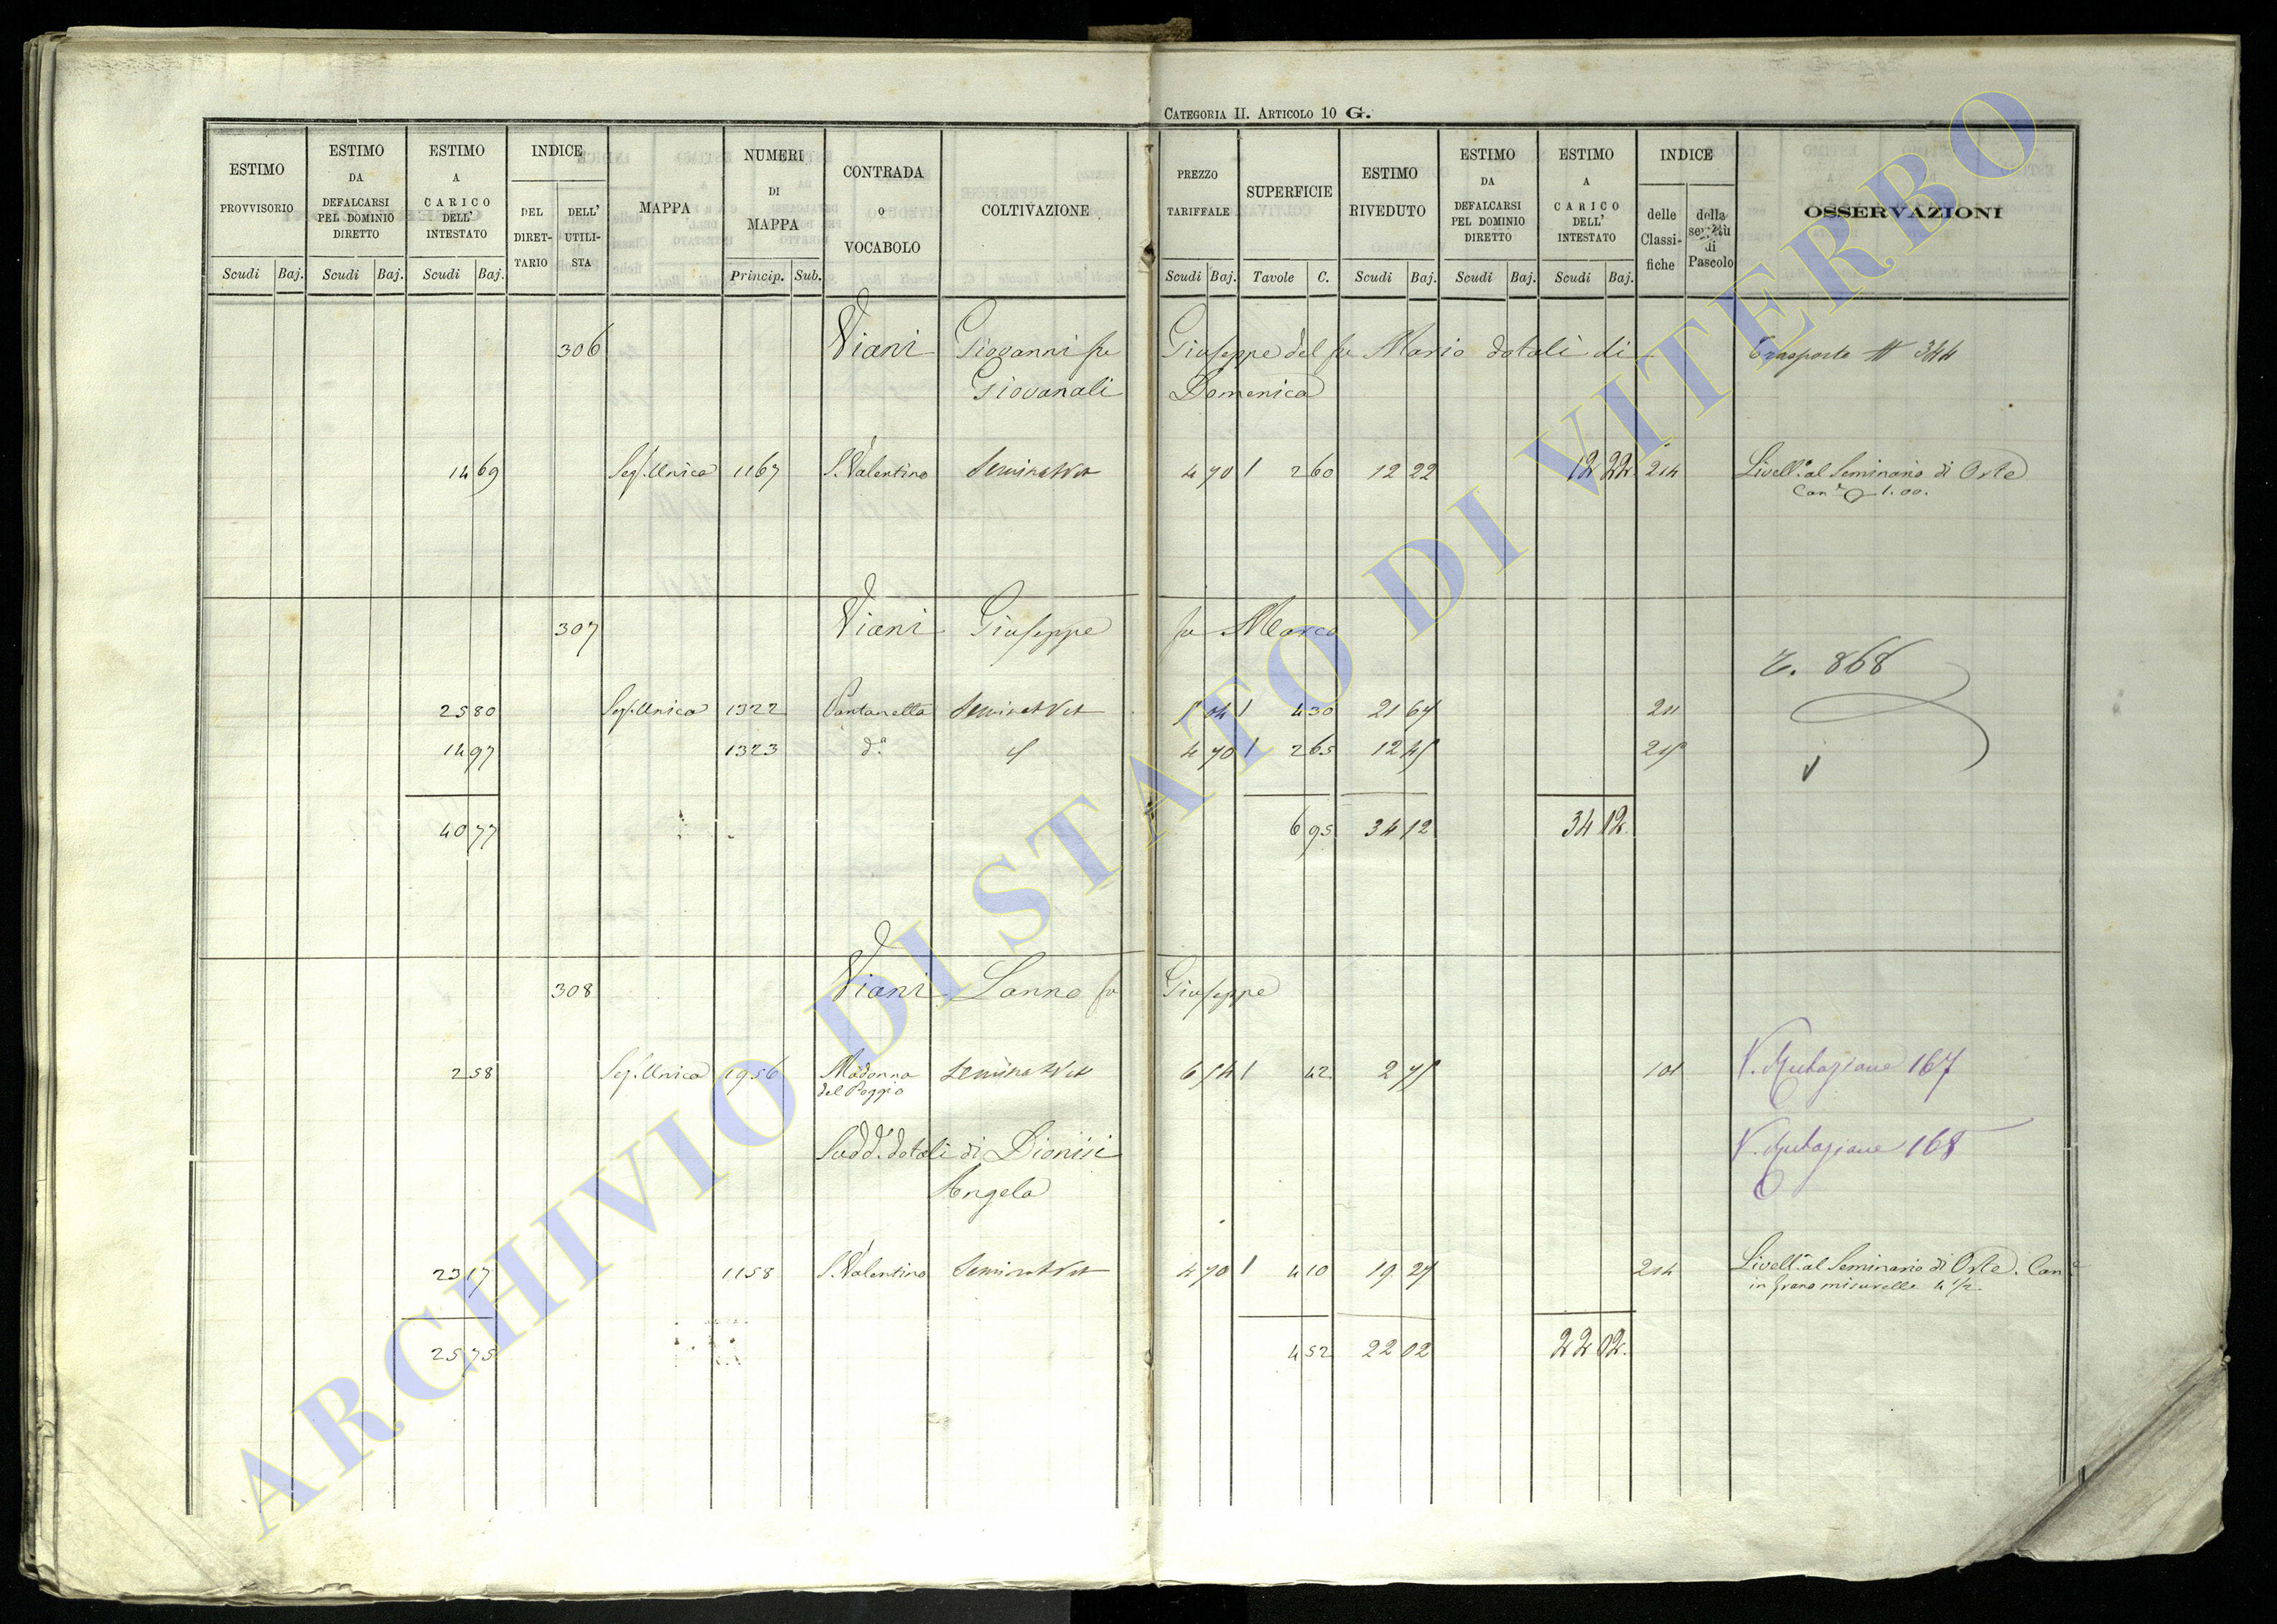 CATEGORIA II. ARTICOLO 10 G.
ESTIMO PROVVISORIO Scudi Baj.
ESTIMO DA DEFALCARSI PEL DOMINIO DIRETTO Scudi Baj.
ESTIMO A CARICO DELL' INTESTATO Scudi Baj.
INDICE DEL DIRETTARIO DELL' UTILISTA
MAPPA
NUMERI DI MAPPA Princip. Sub.
CONTRADA O VOCABOLO
COLTIVAZIONE
PREZZO TARIFFALE Scudi Baj.
SUPERFICIE Tavole C.
ESTIMO RIVEDUTO Scudi Baj.
ESTIMO DA DEFALCARSI PEL DOMINIO DIRETTO Scudi Baj.
ESTIMO A CARICO DELL' INTESTATO Scudi Baj.
INDICE delle Classifiche della servitù di Pascolo
OSSERVAZIONI
306 Viani Giovanni fu Giuseppe del fu Mario dotali di Trasporto N 344
Giovanali Domenica
14 69 Sez. Unica 1167 S. Valentino Seminat Vit 4 70 1 2 60 12 22 12 22 214 Livell.º al Seminario di Orte
Can.e 1.00.
307 Viani Giuseppe fu Marco
T. 868
25 80 Sez. Unica 1322 Pantanella Seminat Vit 5 04 1 4 30 21 67 211
14 97 1323 d.ª 4 70 1 2 65 12 45 215
40 77 6 95 34 12 34 12
308 Viani Lanno fu Giuseppe
2 58 Sez. Unica 1956 Madonna del Poggio Seminat Vit 6 54 1 42 2 75 101 V. Mutazione 167
Sudd.º dotali di Dionisi V. Mutazione 168
Angela
23 17 1158 S. Valentino Seminat Vit 4 70 1 4 10 19 27 214 Livell.º al Seminario di Orte. Can.e
in grano misurelle 4 1/2
25 75 4 52 22 02 22 02
ARCHIVIO DI STATO DI VITERBO